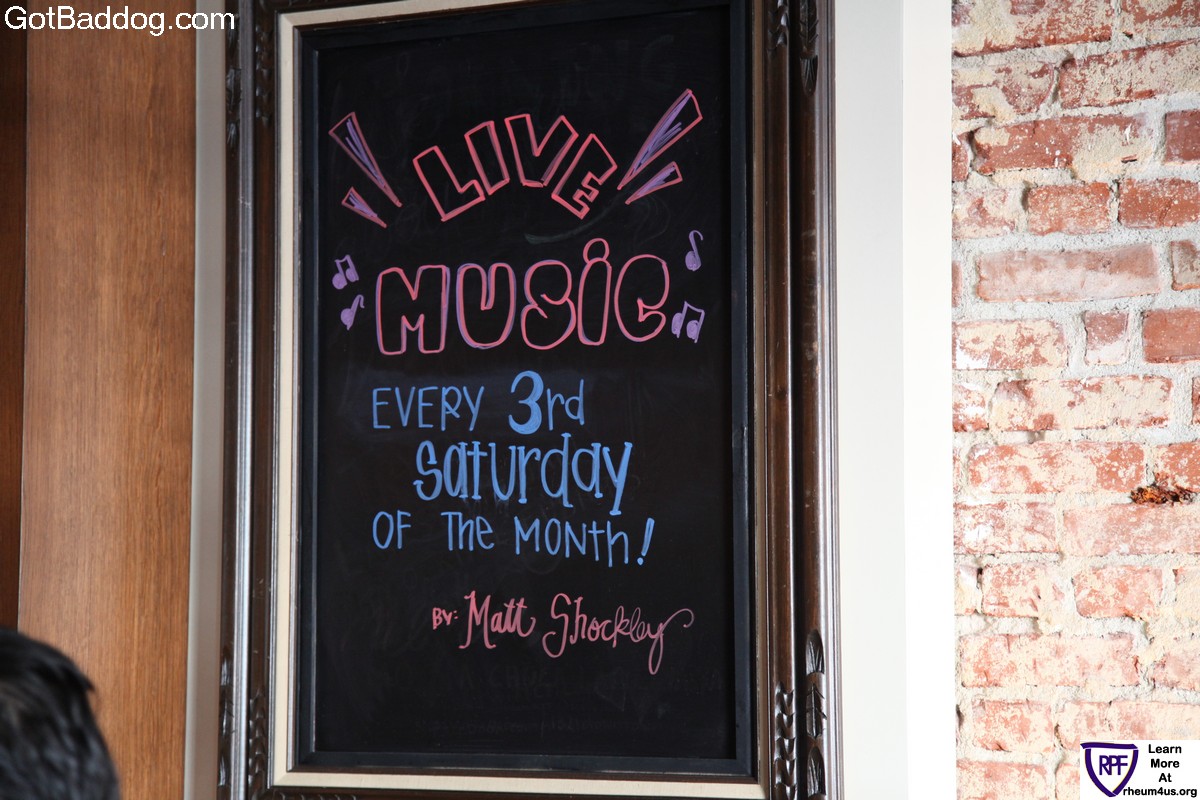 GotBaddog.com
LIVE
MUSIC
EVERY 3rd
Saturday
OF THE MONTH!
BY: Matt Shockley
RPF
Learn
More
At
rheum4us.org